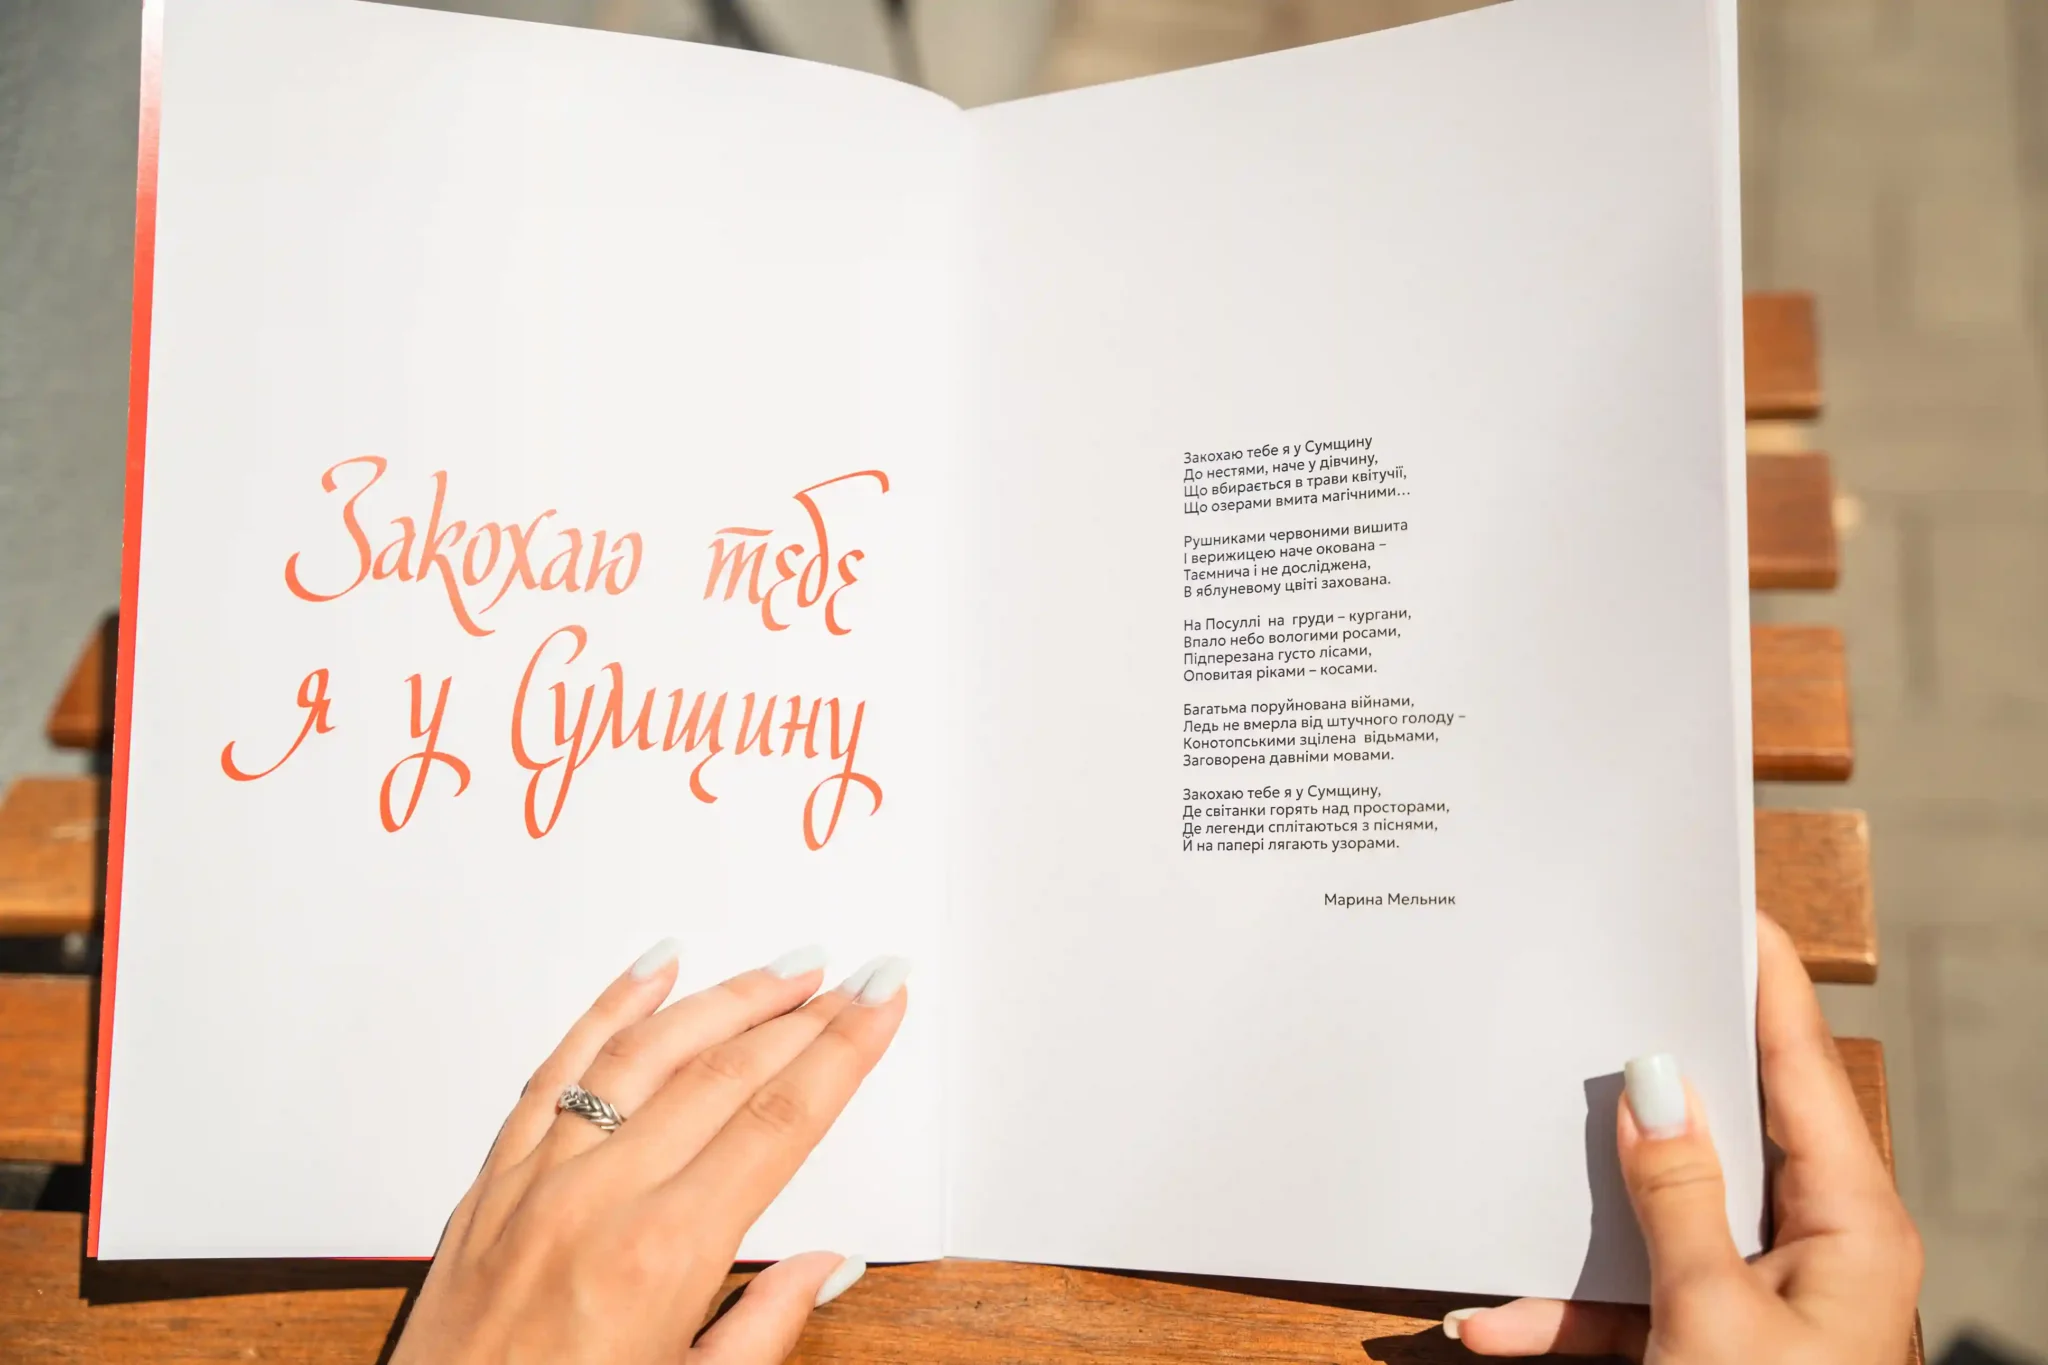 Закохаю тебе
я у Сумщину
Закохаю тебе я у Сумщину
До нестями, наче у дівчину,
Що вбирається в трави квітучії,
Що озерами вмита магічними…
Рушниками червоними вишита
І верижицею наче окована –
Таємнича і не досліджена,
В яблуневому цвіті захована.
На Посуллі на груди – кургани,
Впало небо вологими росами,
Підперезана густо лісами,
Оповитая ріками – косами.
Багатьма поруйнована війнами,
Ледь не вмерла від штучного голоду –
Конотопськими зцілена відьмами,
Заговорена давніми мовами.
Закохаю тебе я у Сумщину,
Де світанки горять над просторами,
Де легенди сплітаються з піснями,
Й на папері лягають узорами.
Марина Мельник